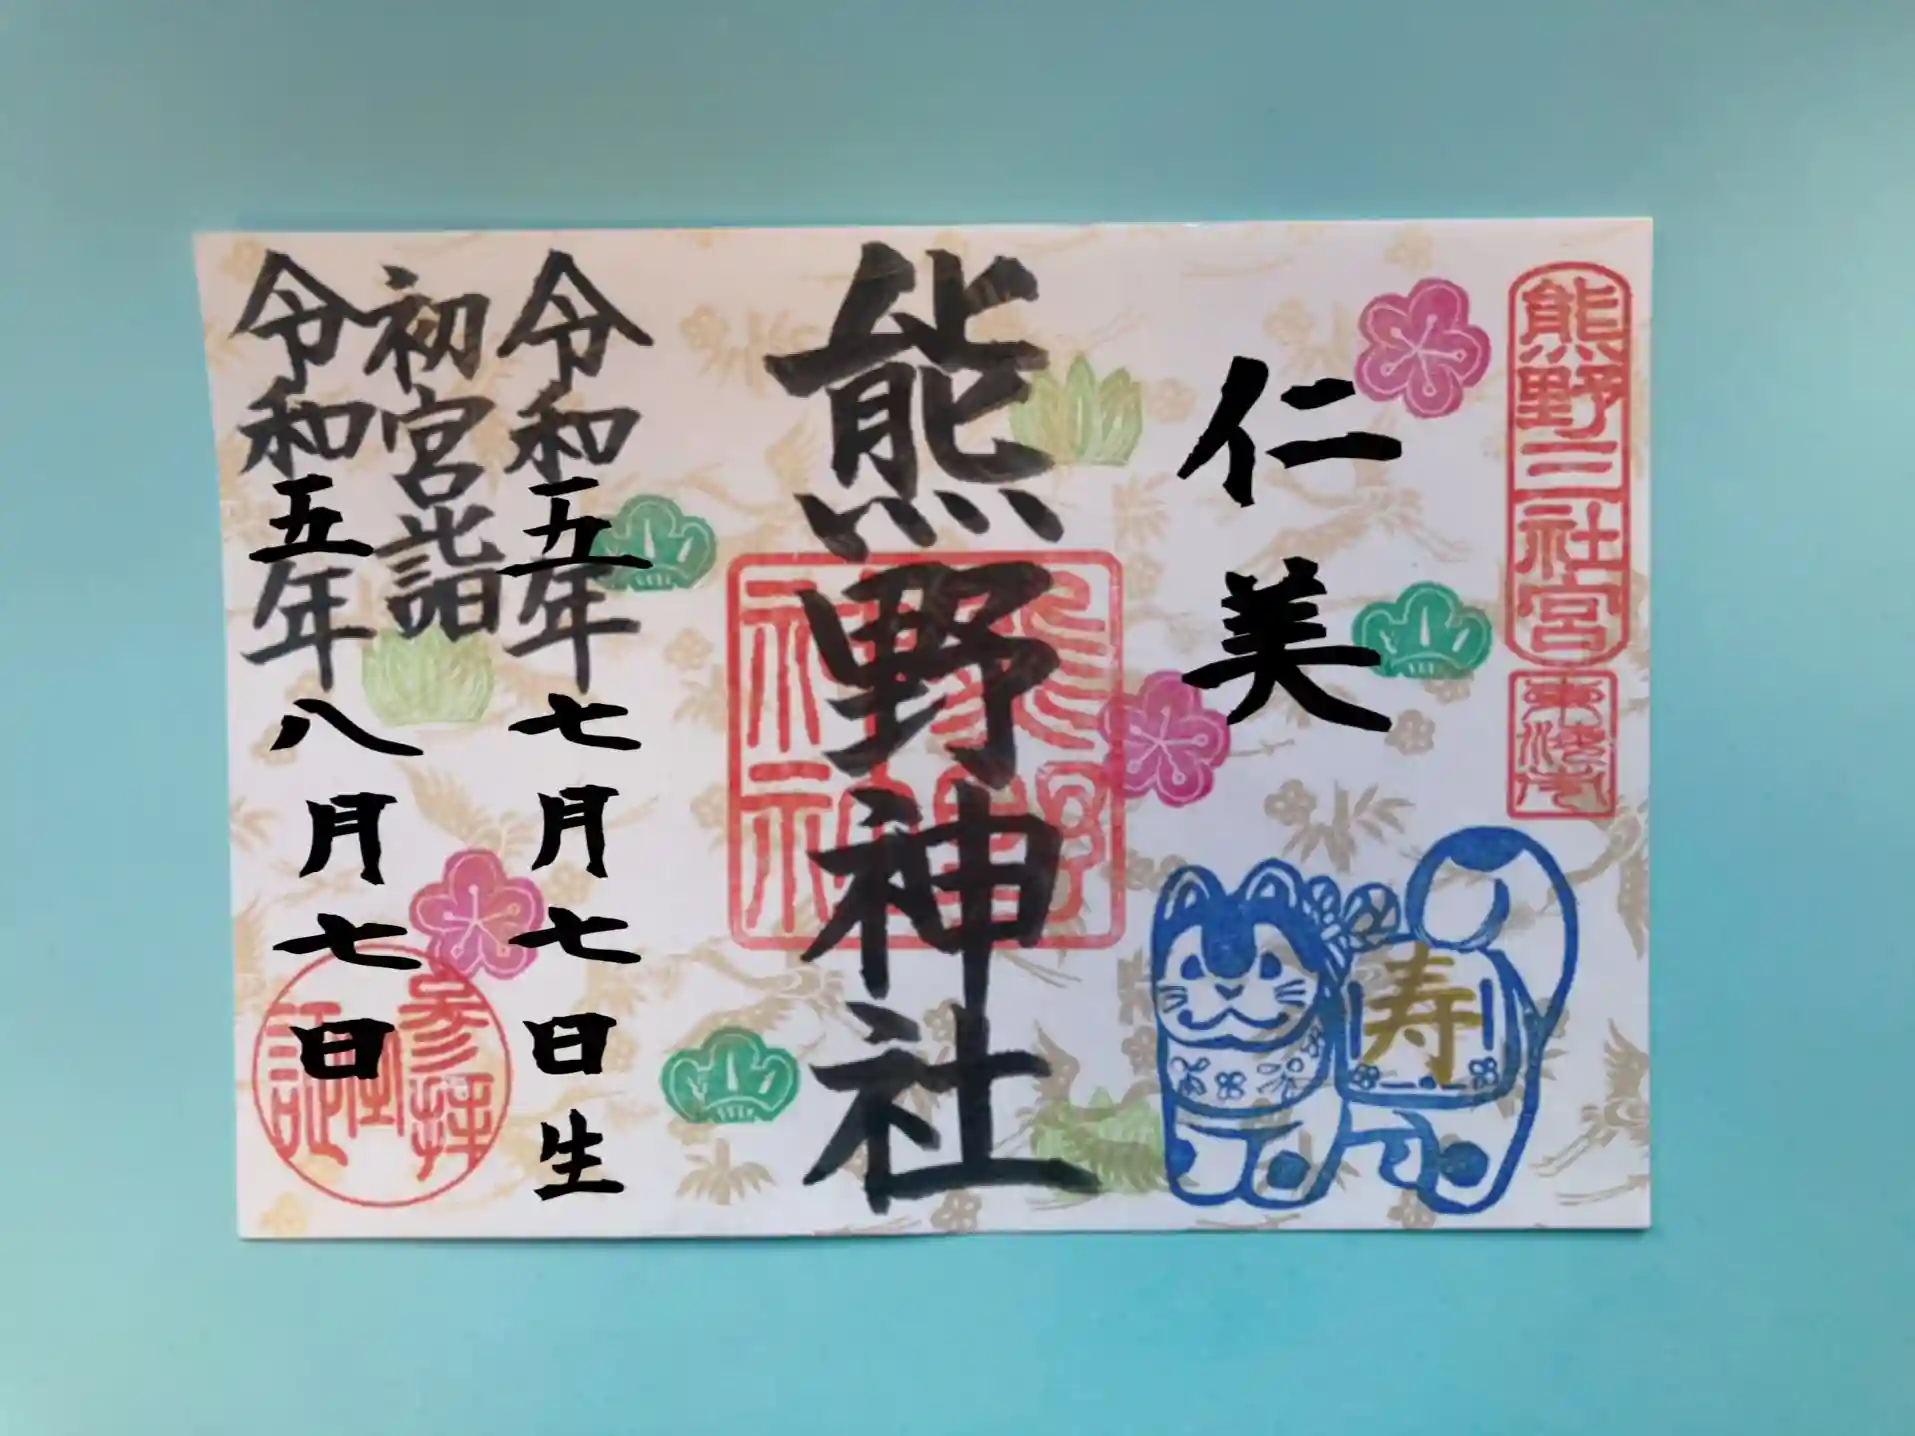 熊野三社宮
仁美
寿
熊野神社
熊野神社
令和五年七月七日生
初宮詣
令和五年八月七日
参拝証